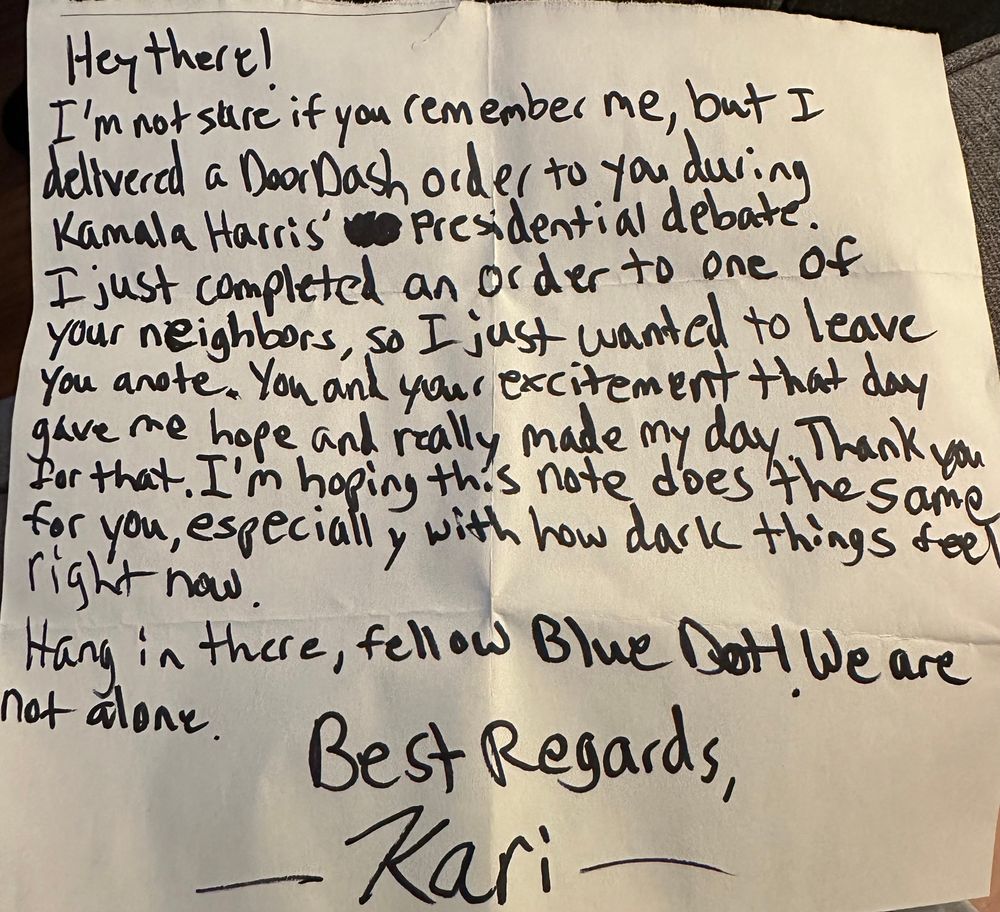 Hey there!
I'm not sure if you remember me, but I
delivered a DoorDash order to you during
Kamala Harris' Presidential debate.
I just completed an order to one of
your neighbors, so I just wanted to leave
you a note. You and your excitement that day
gave me hope and really made my day. Thank you
for that. I'm hoping this note does the same
for you, especially with how dark things feel
right now.
Hang in there, fellow Blue Dot! We are
not alone.
Best Regards,
— Kari —